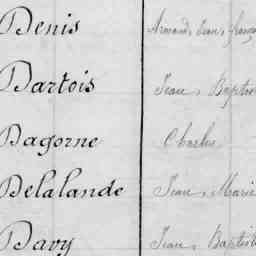 Denis Armand, Jean, franço
Dartois Jean, Baptis
Dagorne Charles
Delalande Jean, Marie
Davy Jean, Baptist